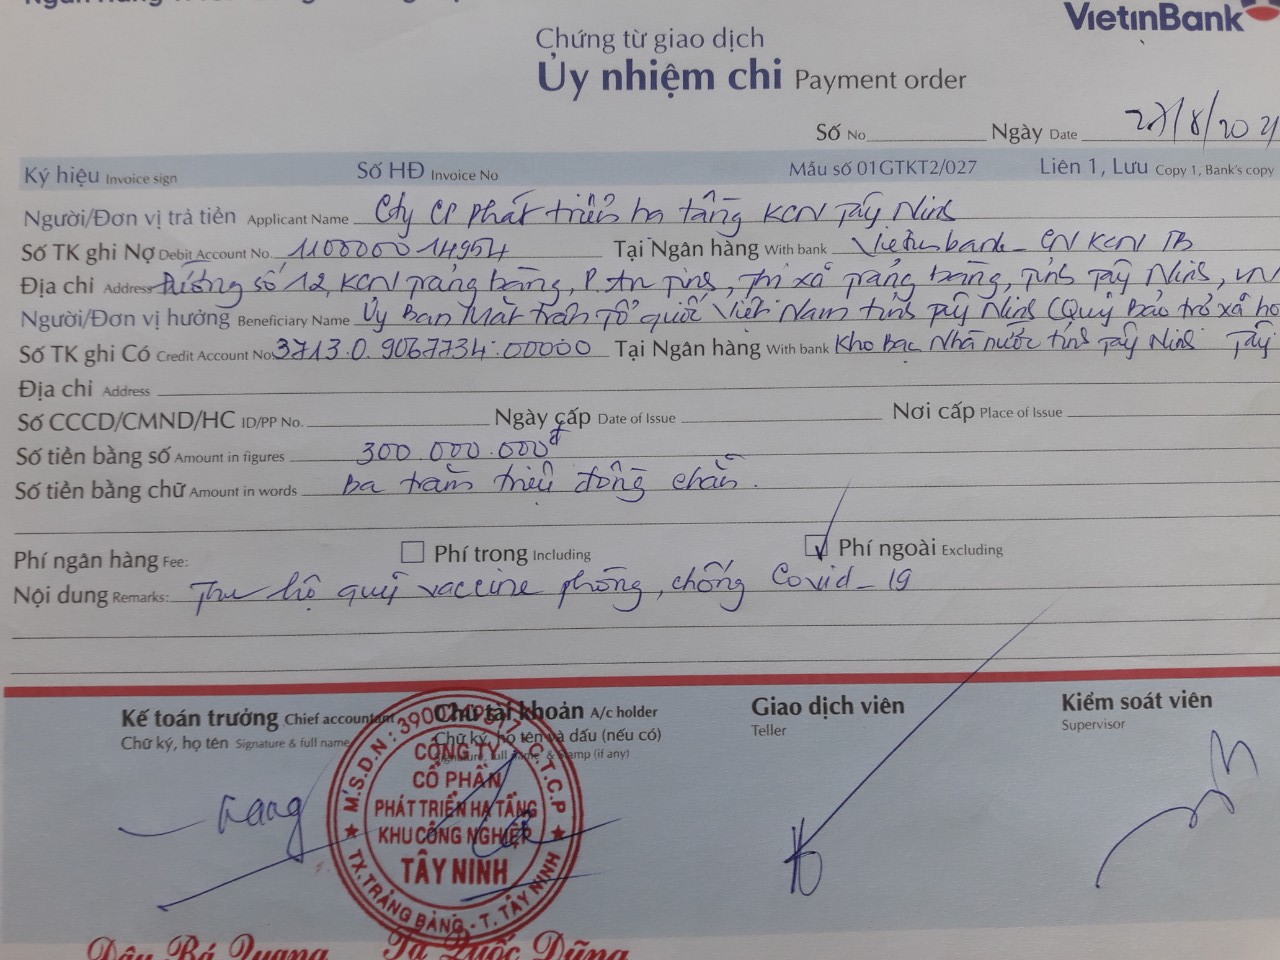 VietinBank
Chứng từ giao dịch
Ủy nhiệm chi Payment order
Số No Ngày Date 27/8/2021
Ký hiệu Invoice sign Số HĐ Invoice No Mẫu số 01GTKT2/027 Liên 1, Lưu Copy 1, Bank's copy
Người/Đơn vị trả tiền Applicant Name Cty CP phát triển hạ tầng KCN Tây Ninh
Số TK ghi Nợ Debit Account No. 110000014954 Tại Ngân hàng With bank Vietinbank - CN KCN TB
Địa chỉ Address Đường số 12, KCN Trảng Bàng, P. An Tịnh, Thị xã Trảng Bàng, Tỉnh Tây Ninh, VN
Người/Đơn vị hưởng Beneficiary Name Ủy Ban Mặt trận Tổ quốc Việt Nam tỉnh Tây Ninh (Quỹ bảo trợ xã hộ
Số TK ghi Có Credit Account No 3713.0.9067734.00000 Tại Ngân hàng With bank Kho bạc Nhà nước tỉnh Tây Ninh Tây
Địa chỉ Address
Số CCCD/CMND/HC ID/PP No. Ngày cấp Date of Issue Nơi cấp Place of Issue
Số tiền bằng số Amount in figures 300.000.000đ
Số tiền bằng chữ Amount in words Ba trăm triệu đồng chẵn.
Phí ngân hàng Fee: Phí trong Including Phí ngoài Excluding
Nội dung Remarks: Thu hộ quỹ vaccine phòng, chống Covid-19
Kế toán trưởng Chief accountant Chủ tài khoản A/c holder Giao dịch viên Kiểm soát viên
Chữ ký, họ tên Signature & full name Chữ ký, họ tên và dấu (nếu có) Teller Supervisor
Signature, full name & stamp (if any)
M.S.D.N: C.T.C.P
CÔNG TY
CỔ PHẦN
PHÁT TRIỂN HẠ TẦNG
KHU CÔNG NGHIỆP
TÂY NINH
TX.TRẢNG BÀNG - T. TÂY NINH
Quang
Đậu Bá Quang Tạ Quốc Dũng